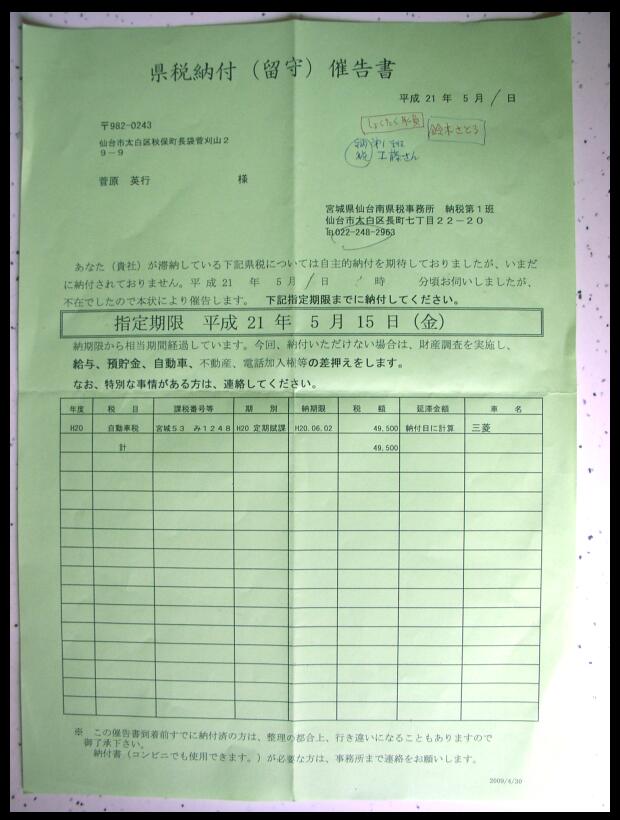 県税納付（留守）催告書
平成 21 年 5 月 / 日
〒982-0243
仙台市太白区秋保町長袋菅刈山２
９－９
菅原 英行 様
鈴木さとる
納税
工藤さん
宮城県仙台南県税事務所 納税第１班
仙台市太白区長町七丁目２２－２０
℡022-248-2963
あなた（貴社）が滞納している下記県税については自主的納付を期待しておりましたが、いまだ
に納付されておりません。平成 21 年 5 月 / 日 時 分頃お伺いしましたが、
不在でしたので本状により催告します。 下記指定期限までに納付してください。
指定期限 平成 21 年 5 月 15 日（金）
納期限から相当期間経過しています。今回、納付いただけない場合は、財産調査を実施し、
給与、預貯金、自動車、不動産、電話加入権等の差押えをします。
なお、特別な事情がある方は、連絡してください。
年度 税 目 課税番号等 期 別 納期限 税 額 延滞金額 車 名
H20 自動車税 宮城５３ み１２４８ H20 定期賦課 H20.06.02 49,500 納付日に計算 三菱
計 49,500
※ この催告書到着前すでに納付済の方は、整理の都合上、行き違いになることもありますので
御了承下さい。
納付書（コンビニでも使用できます。）が必要な方は、事務所まで連絡をお願いします。
2009/4/30